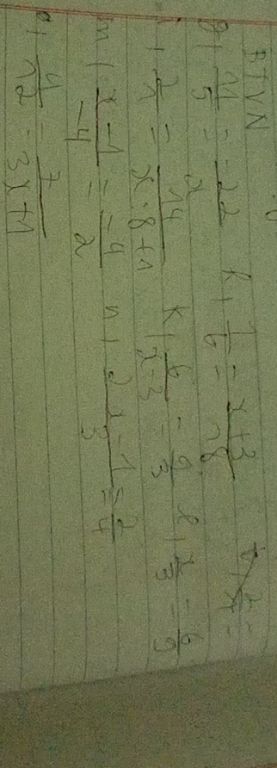 BTVN
g) 11/5 = -22/x  k) 7/6 = x+3/18
i) 2/1 = 14/x·8+1  k) 6/x-3 = 9/3  l) x/3 = 6/9
m) x-1/-4 = -4/2  n) 2x-1/3 = 2/4
o) 4/12 = 7/3x+1